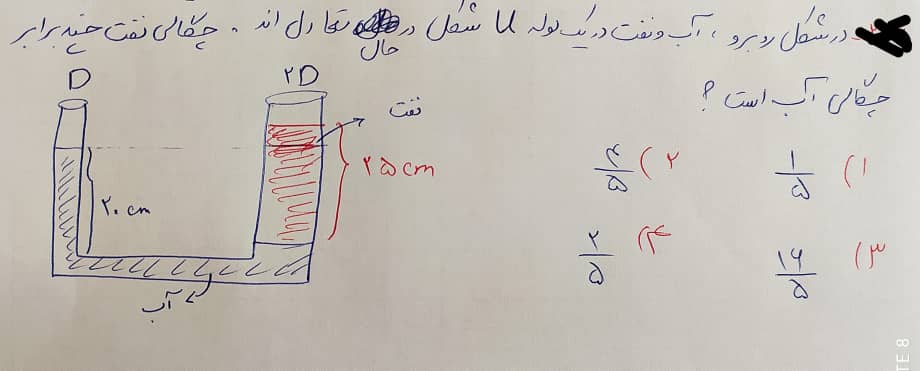 در شکل روبرو ، آب و نفت در یک لوله U شکل در حال تعادل اند . چگالی نفت چند برابر
چگالی آب است ؟
D
۲D
نفت
۲۰ cm
۲۵ cm
آب
۱) ۱/۵
۲) ۴/۵
۳) ۱۶/۵
۴) ۲/۵
TE 8